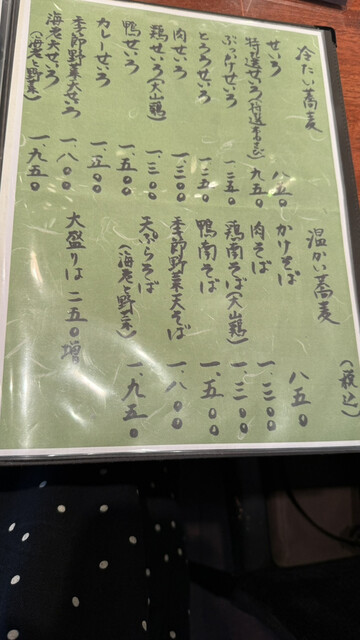 冷たい蕎麦
せいろ 八五〇
特選せいろ 九五〇
ぶっかけせいろ 一、二五〇
とろろせいろ 一、二五〇
肉せいろ 一、三〇〇
鶏せいろ(大山鶏) 一、三〇〇
鴨せいろ 一、五〇〇
カレーせいろ 一、五〇〇
季節野菜天せいろ 一、八〇〇
海老天せいろ 一、九五〇
(海老と野菜)
温かい蕎麦 (税込)
かけそば 八五〇
肉そば 一、三〇〇
鶏南そば(大山鶏) 一、三〇〇
鴨南そば 一、五〇〇
季節野菜天そば 一、八〇〇
天ぷらそば 一、九五〇
(海老と野菜)
大盛りは二五〇増